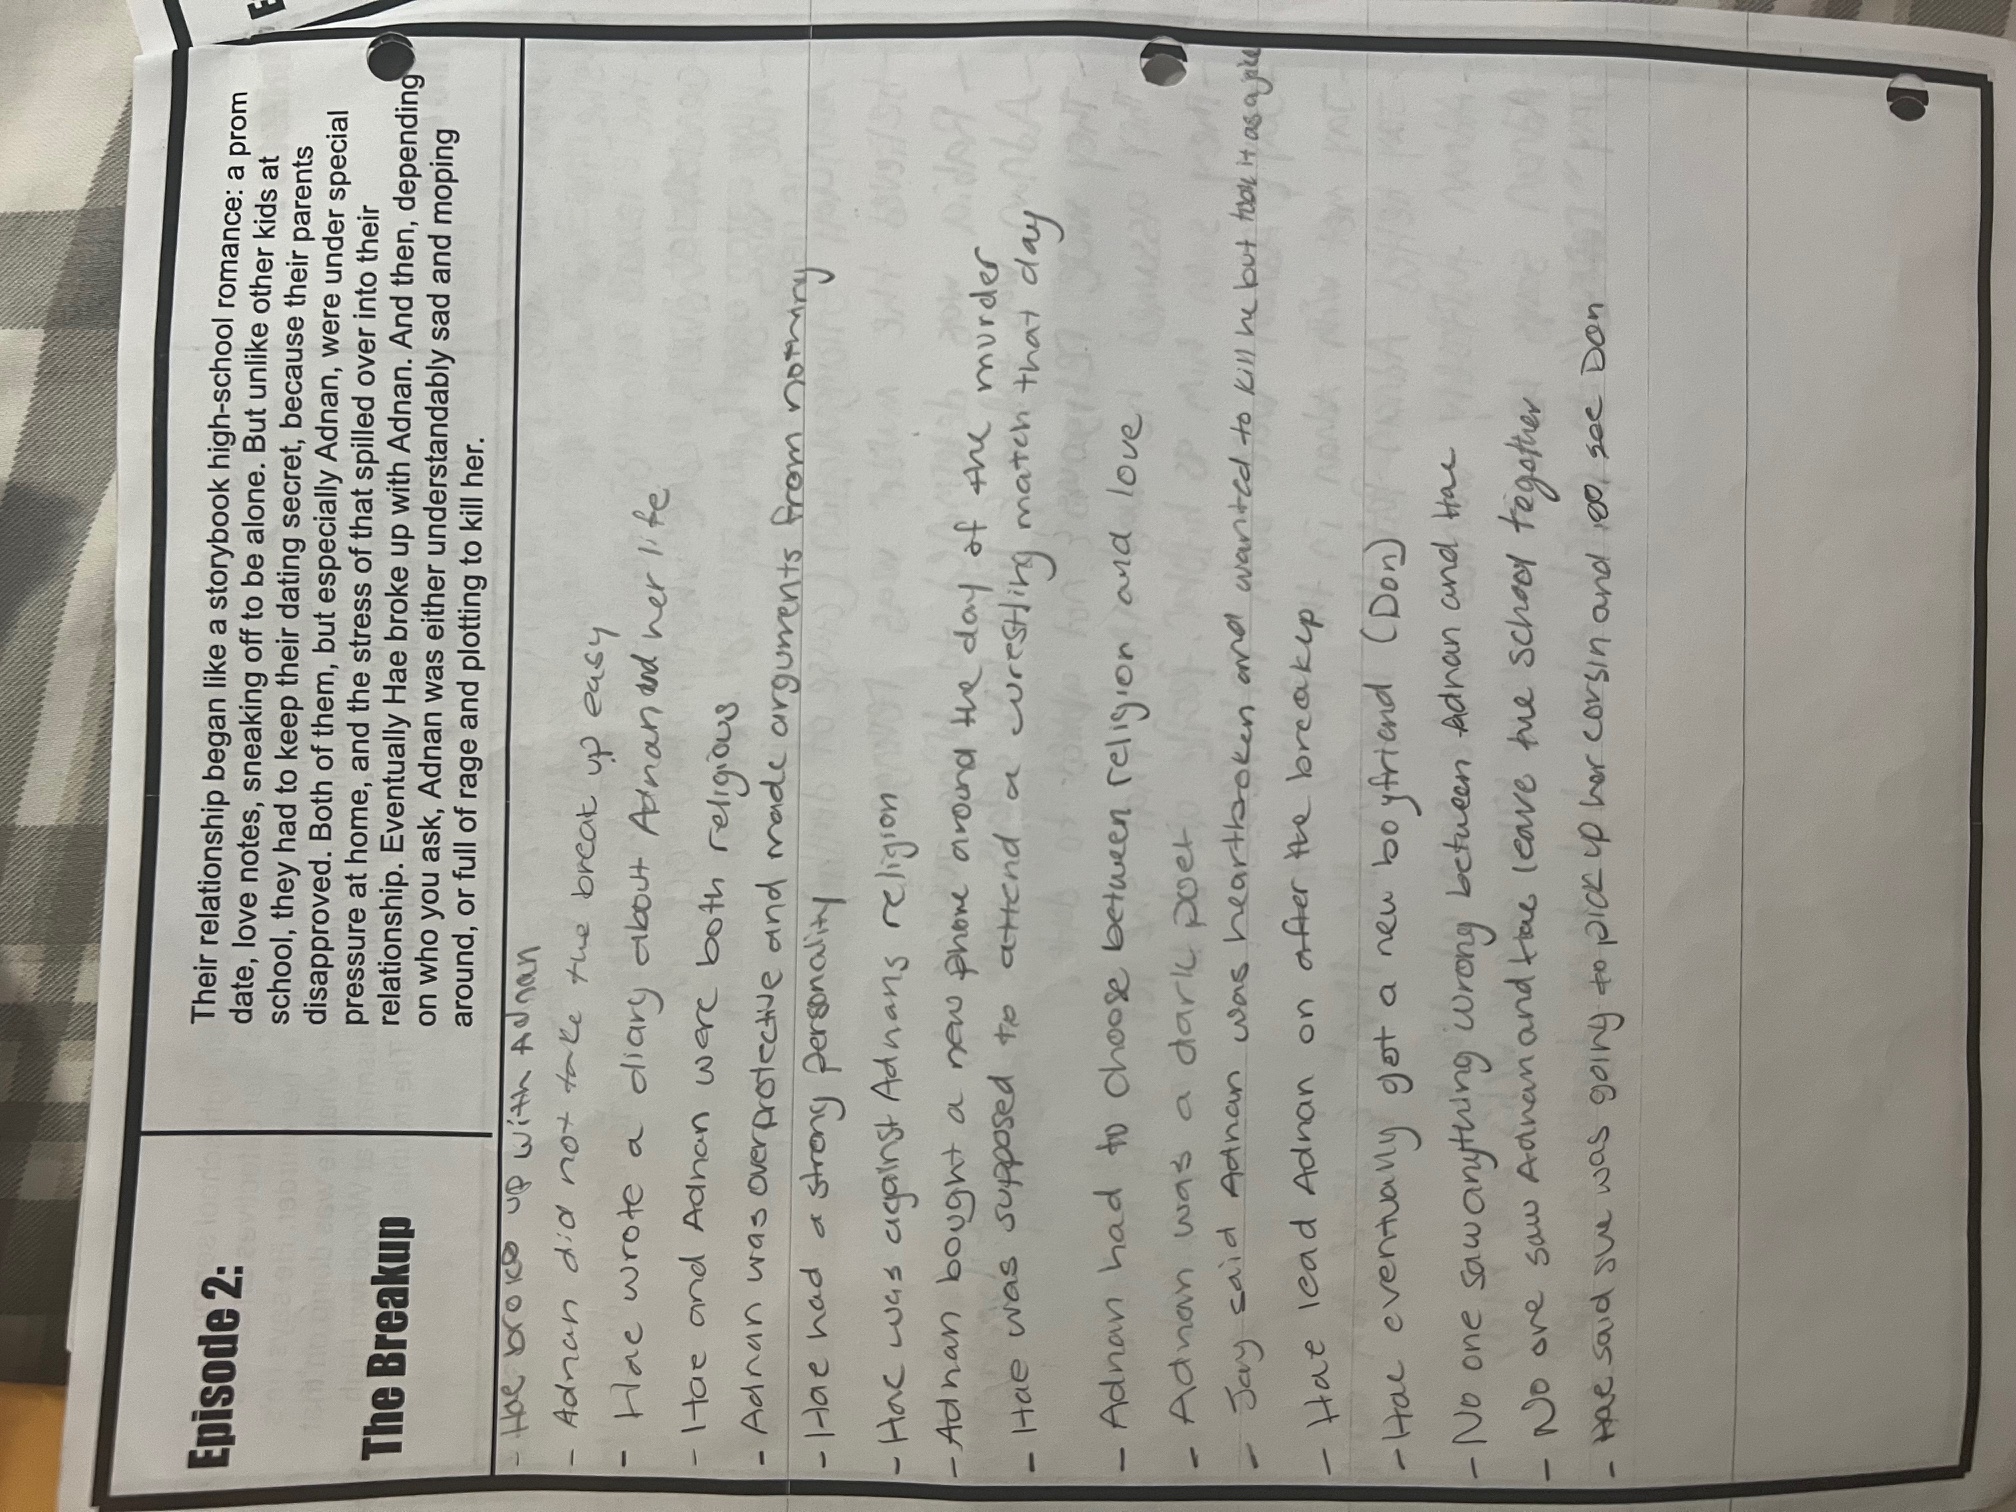 Episode 2:
The Breakup
Their relationship began like a storybook high-school romance: a prom
date, love notes, sneaking off to be alone. But unlike other kids at
school, they had to keep their dating secret, because their parents
disapproved. Both of them, but especially Adnan, were under special
pressure at home, and the stress of that spilled over into their
relationship. Eventually Hae broke up with Adnan. And then, depending
on who you ask, Adnan was either understandably sad and moping
around, or full of rage and plotting to kill her.
- Hae broke up with Adnan
- Adnan did not take the break up easy
- Hae wrote a diary about Adnan and her life
- Hae and Adnan were both religious
- Adnan was overprotective and made arguments from nothing
- Hae had a strong personality
- Hae was against Adnans religion
- Adnan bought a new phone around the day of the murder
- Hae was supposed to attend a wrestling match that day
- Adnan had to choose between religion and love
- Adnan was a dark poet
- Jay said Adnan was heartbroken and wanted to kill he but took it as a joke
- Hae lead Adnan on after the breakup
- Hae eventually got a new boyfriend (Don)
- No one saw anything wrong between Adnan and Hae
- No one saw Adnan and Hae leave the school together
- Hae said she was going to pick up her corsin and see Don